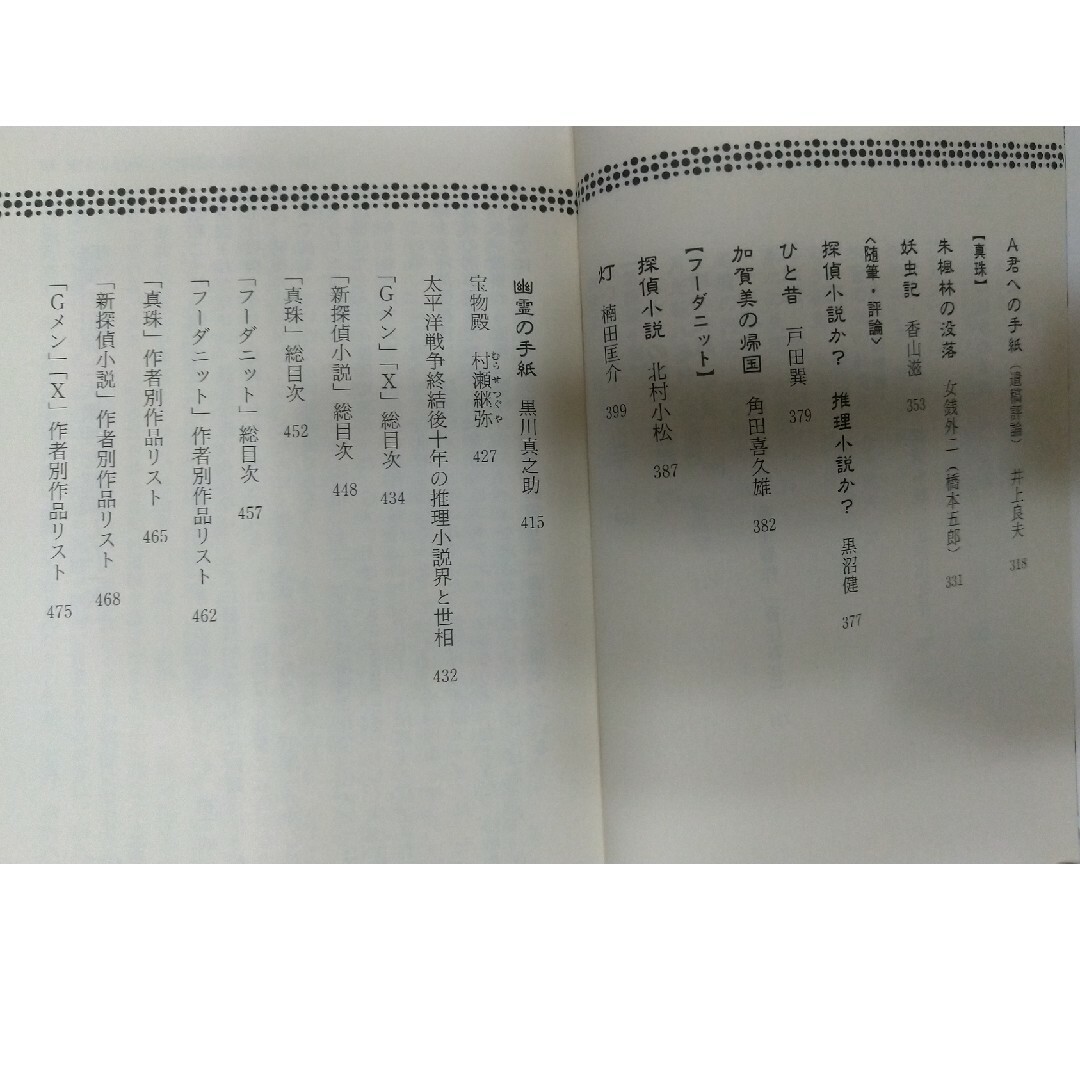 A君への手紙(遺稿評論) 井上良夫 318
【真珠】
朱楓林の没落 女銭外二(橋本五郎) 331
妖虫記 香山滋 353
〈随筆・評論〉
探偵小説か? 推理小説か? 黒沼健 377
ひと昔 戸田巽 379
加賀美の帰国 角田喜久雄 382
【フーダニット】
探偵小説 北村小松 387
灯 楠田匡介 399
幽霊の手紙 黒川真之助 415
宝物殿 村瀬継弥 むらせつぐや 427
太平洋戦争終結後十年の推理小説界と世相 432
「Gメン」「X」総目次 434
「新探偵小説」総目次 448
「真珠」総目次 452
「フーダニット」総目次 457
「フーダニット」作者別作品リスト 462
「真珠」作者別作品リスト 465
「新探偵小説」作者別作品リスト 468
「Gメン」「X」作者別作品リスト 475